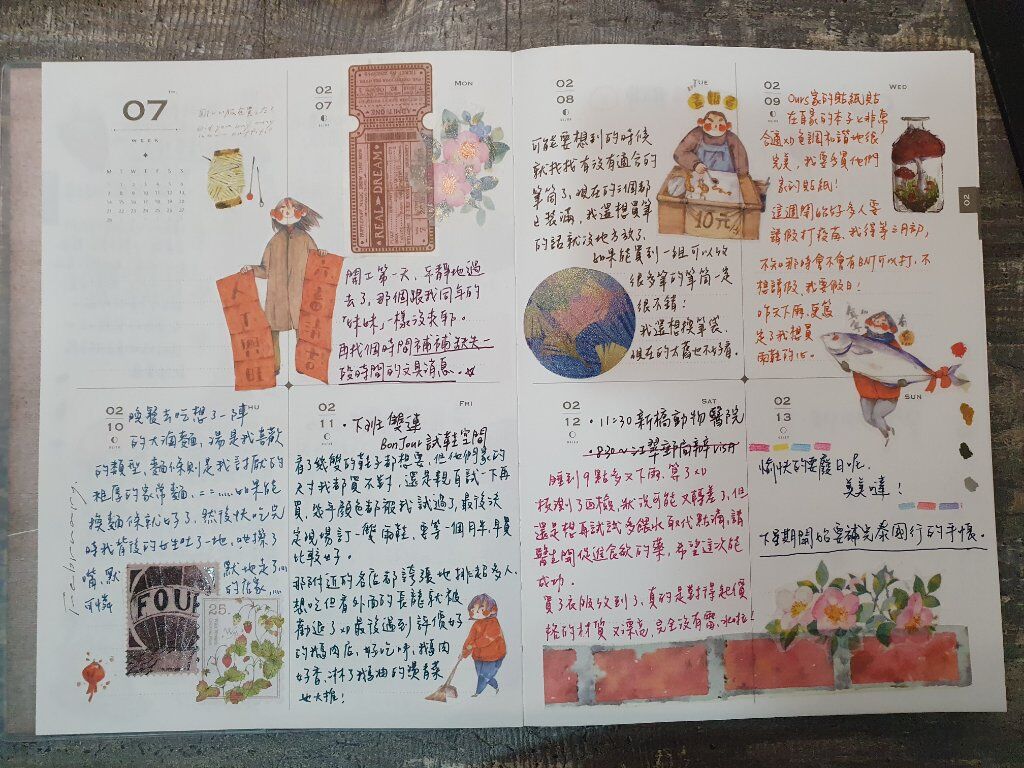 07
WEEK
M T W T F S S
02
07
MON
REAL DREAM
開工第一天，平靜地過
去了，那個跟我同年的
「妹妹」一樣沒來耶。
再找個時間補補缺失一
段時間的文具消息。
02
08
TUE
可能要想到的時候
就找找有沒有適合的
筆筒了，現在的三個都
已裝滿，我還想買筆
的話就沒地方放了，
如果能買到一組可以收
很多筆的筆筒一定
很不錯！
我還想換筆袋，
現在的太舊也不好看。
10元
02
09
WED
Ours家的貼紙貼
在百景的本子上非常
合適xD色調和諧地很
完美，我要多買他們
家的貼紙！
這週開始好多人要
請假打疫苗，我得等三月初，
不知那時會不會有BNT可以打，不
想請假，我要假日！
昨天下雨，更篤
定了我想買
雨鞋的心。
02
10
THU
晚餐去吃想了一陣
的大滷麵，湯是我喜歡
的類型，麵條則是我討厭的
粗厚的家常麵......如果能
換麵條就好了，然後快吃完
時我背後的女生吐了一地，她擦了
嘴，默
默地走了...
可憐
的店家...
February
FOUR
25
02
11
FRI
・下班 雙連
Bonjour 試鞋空間
看了幾雙的鞋子都想要，但他們家的
尺寸我都買不對，還是親自試一下再
買，幾乎顏色都被我試過了，最後決
定現場訂一雙雨鞋，要等一個月半，早買
比較好。
那附近的名店都誇張地排超多人，
想吃但看外面的長龍就被
勸退了xD最後遇到評價好
的鵝肉店，好吃呀，鵝肉
好香，淋了鵝油的燙青菜
也大推！
02
12
SAT
・11:30 新橋動物醫院
・830~江翠郵局辦VISA
睡到9點多又下雨，算了xD
核禩了西檢，狀況可能又轉差了，但
還是想再試試多餵水有代點滴，請
醫生開促進食慾的藥，希望這次能
成功。
買了衣服收到了，真的是對得起價
格的材質，又漂亮，完全沒有雷，水啦！
02
13
SUN
愉快的耍廢日呢，
美美噠！
下星期開始要補完泰國行的手帳。